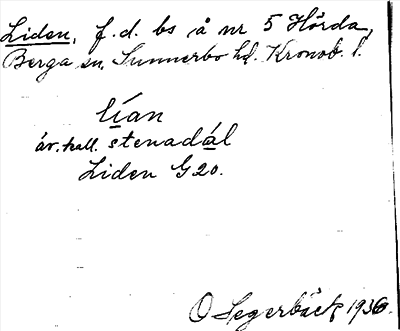 Liden, f.d. bs å nr 5 Hörda,
Berga sn, Sunnerbo hd. Kronob. l.
lían
äv. kall. stenadál
Liden G 20.
O Segerbäck 1936.